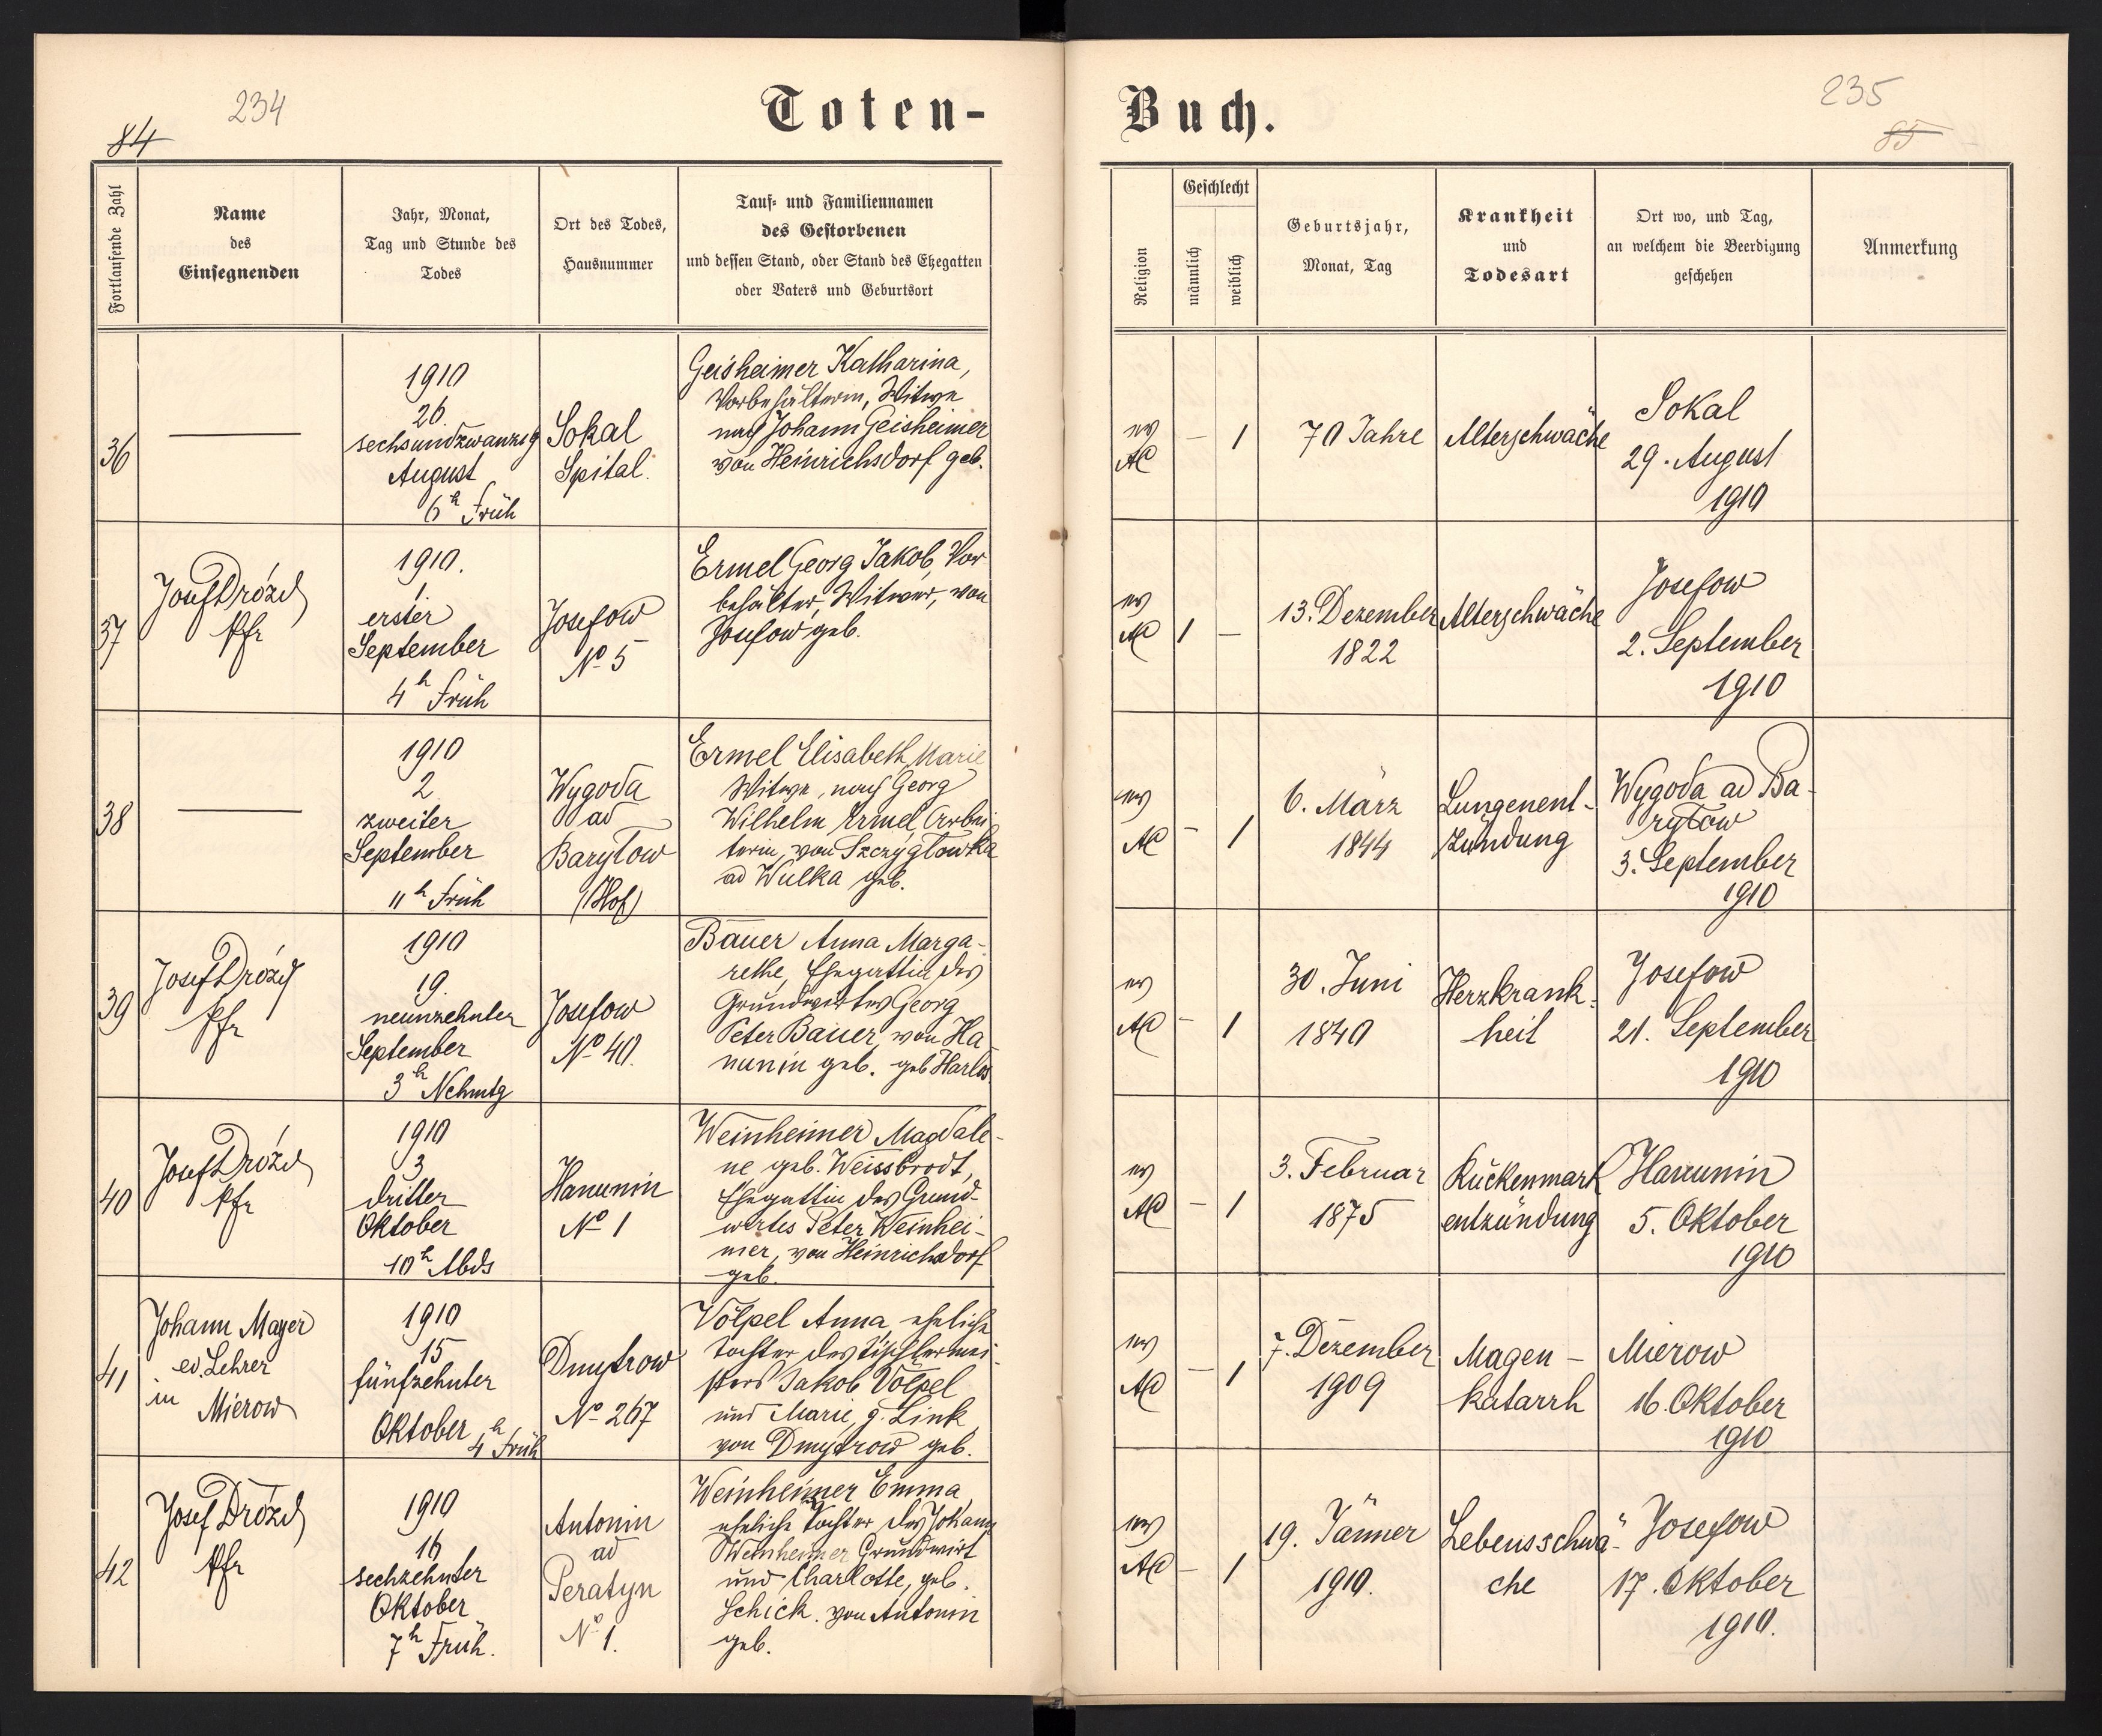 234
84
Toten-
Buch.
235
85
Fortlaufende Zahl
Name
des
Einsegnenden
Jahr, Monat,
Tag und Stunde des
Todes
Ort des Todes,
Hausnummer
Tauf- und Familiennamen
des Gestorbenen
und dessen Stand, oder Stand des Ehegatten
oder Vaters und Geburtsort
Religion
Geschlecht
männlich
weiblich
Geburtsjahr,
Monat, Tag
Krankheit
und
Todesart
Ort wo, und Tag,
an welchem die Beerdigung
geschehen
Anmerkung
36
—
1910
26
sechsundzwanzig
August
6h Früh
Sokal
Spital.
Geisheimer Katharina,
Vorbehälterin, Witwe
nach Johann Geisheimer
von Heinrichsdorf geb.
ev
AC
— 1
70 Jahre
Alterschwäche
Sokal
29. August
1910
37
Josef Drózd
Pfr
1910.
1
erster
September
4h Früh
Josefow
No 5
Ermel Georg Jakob, Vor
behälter, Witwer, von
Josefow geb.
ev
AC
1 —
13. Dezember
1822
Alterschwäche
Josefow
2. September
1910
38
—
1910
2
zweiter
September
11h Früh
Wygoda
ad
Barylow
(Hof)
Ermel Elisabeth Marie
Witwe, nach Georg
Wilhelm Ermel, Arbei
terin, von Szczyglowka
ad Wulka geb.
ev
AC
— 1
6. März
1844
Lungenent-
zündung
Wygoda ad Ba-
rylow
3. September
1910
39
Josef Drózd
Pfr
1910
19.
neunzehnter
September
3h Nchmtg
Josefow
No 40.
Bauer Anna Marga-
rethe, Ehegattin des
Grundwirtes Georg
Peter Bauer, von Ha
nunin geb. geb Harlos
ev
AC
— 1
30. Juni
1840
Herzkrank-
heit
Josefow
21. September
1910
40
Josef Drózd
Pfr
1910
3
dritter
Oktober
10h Abds
Hanunin
No 1
Weinheimer Magdale-
ne geb. Weissbrodt,
Ehegattin des Grund-
wirtes Peter Weinhei-
mer, von Heinrichsdorf
geb.
ev
AC
— 1
3. Februar
1875
Rückenmark
entzündung
Hanunin
5. Oktober
1910
41
Johann Mayer
ev. Lehrer
in
Mierow
1910
15
fünfzehnter
Oktober 4h Früh
Dmytrow
No 267
Völpel Anna eheliche
Tochter des Tischlermei-
sters Jakob Völpel
und Marie, g. Link
von Dmytrow geb.
ev
AC
— 1
7. Dezember
1909
Magen-
katarrh
Mierow
16. Oktober
1910
42
Josef Drózd
Pfr
1910
16
sechzehnter
Oktober
7h Früh.
Antonin
ad
Peratyn
No 1.
Weinheimer Emma
eheliche Tochter des Johann
Weinheimer Grundwirt
und Charlotte, geb.
Schick. von Antonin
geb.
ev
AC
— 1
19. Jänner
1910.
Lebensschwä-
che
Josefow
17. Oktober
1910.